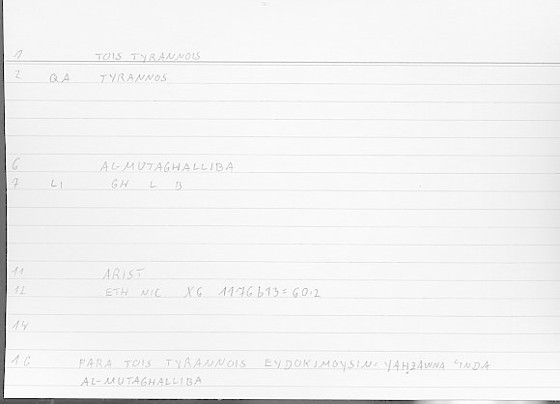 1 TOIS TYRANNOIS
2 QA TYRANNOS
6 AL-MUTAGHALLIBA
7 LI GH L B
11 ARIST
12 ETH NIC X6 1176b13=60.2
14
16 PARA TOIS TYRANNOIS EYDOKIMOYSIN= YAḤZAWNA ʿINDA
AL-MUTAGHALLIBA